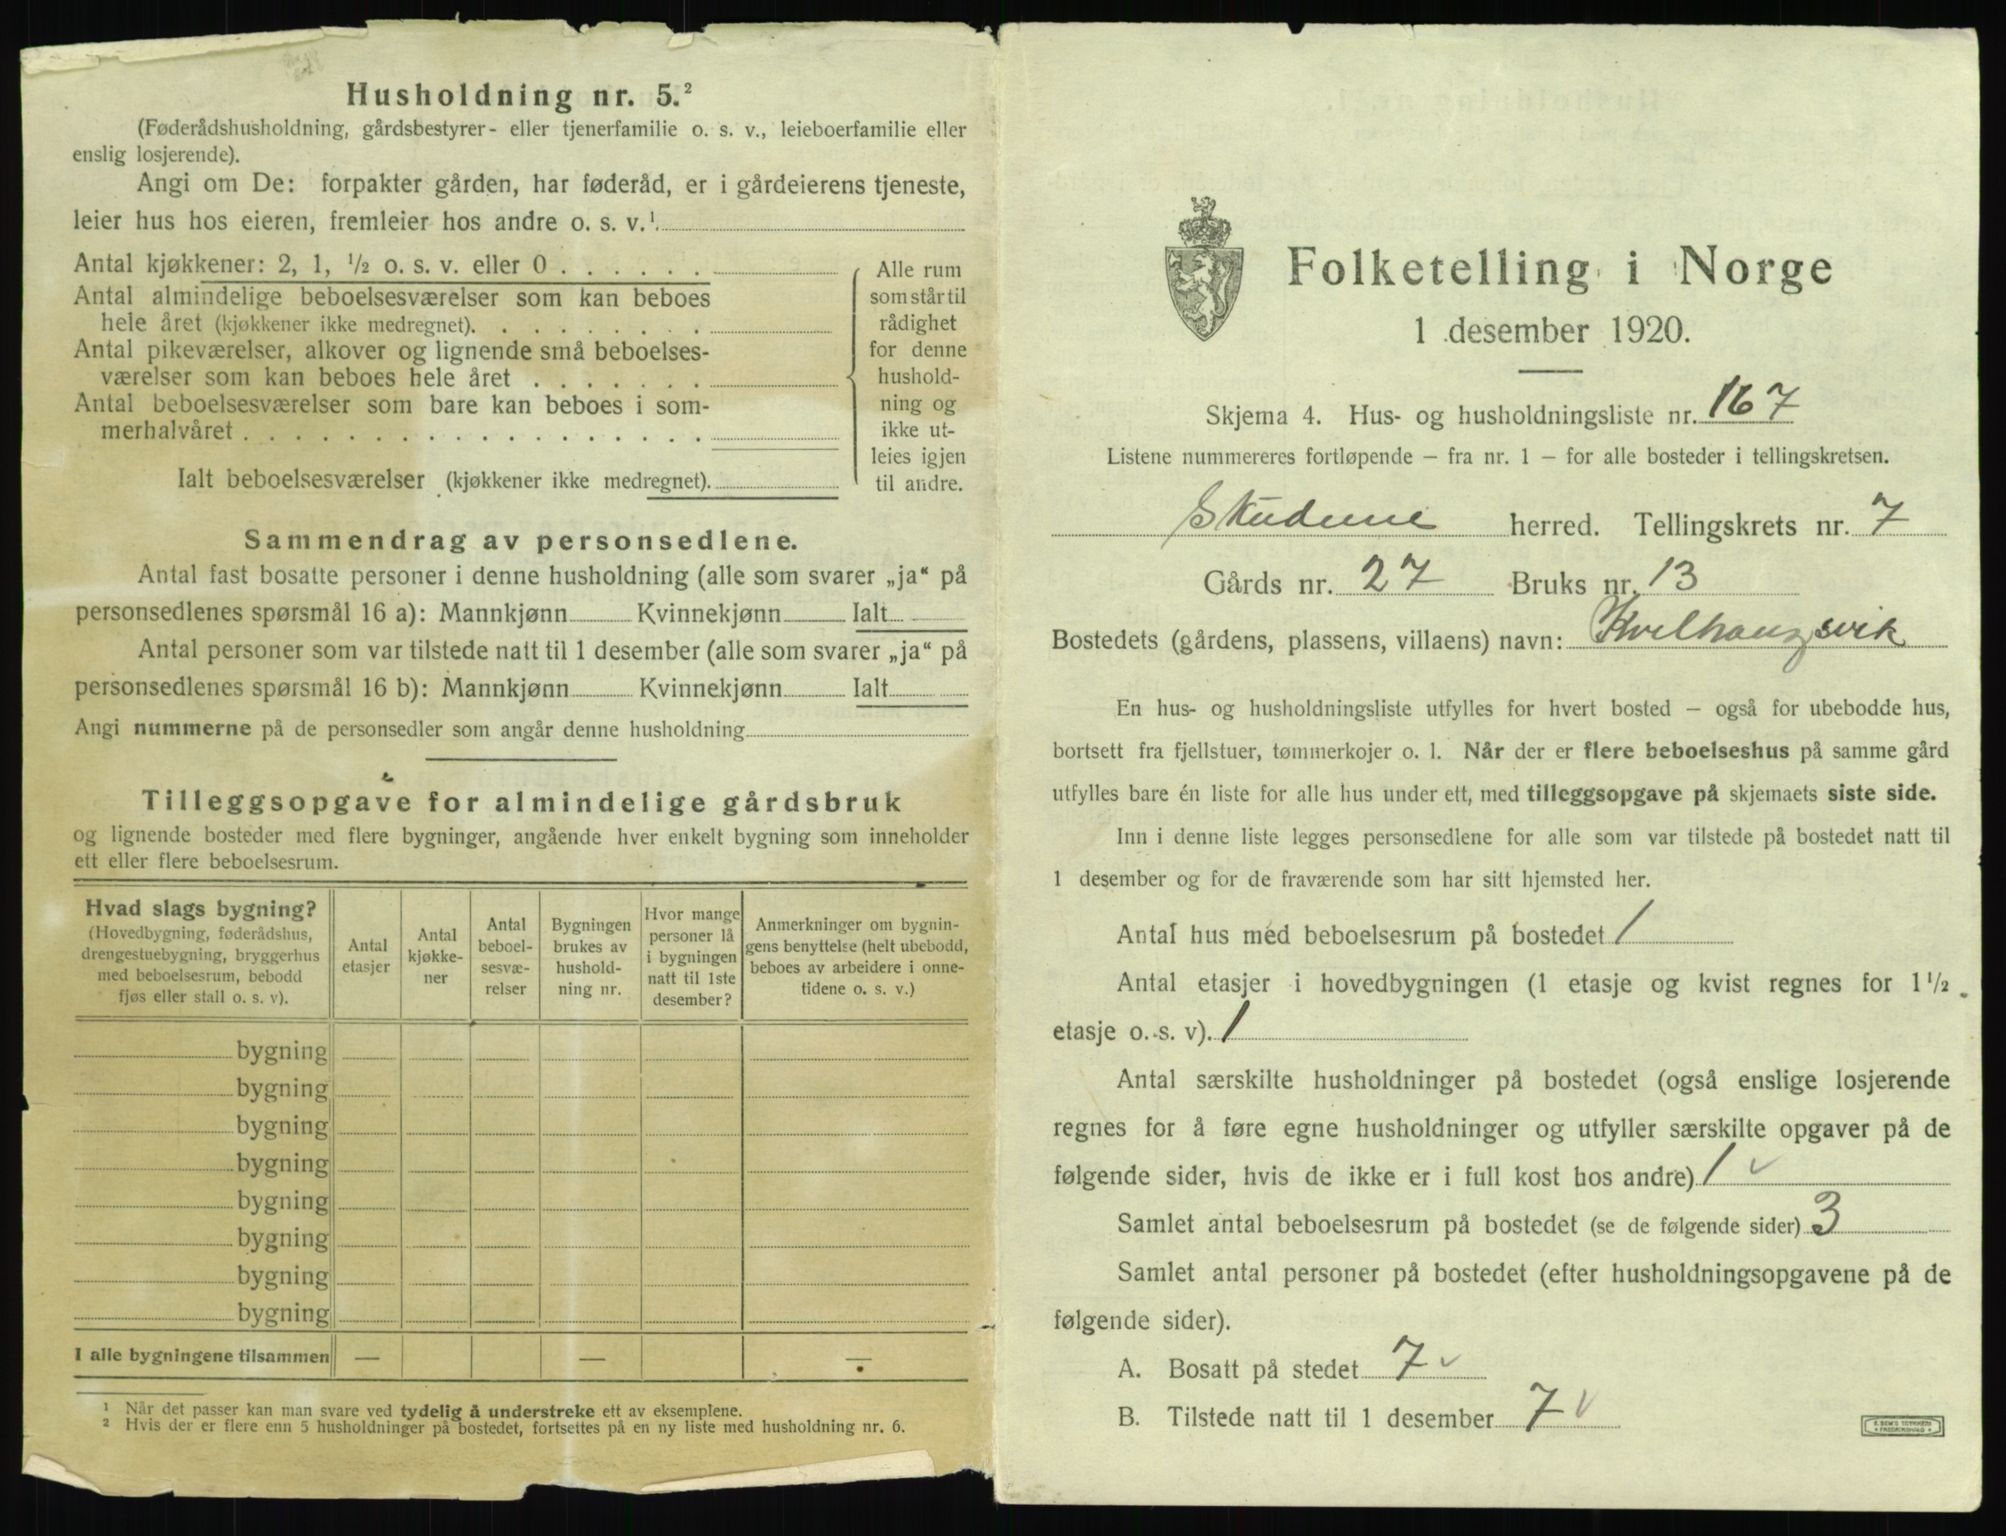 Husholdning nr. 5.²
(Føderådshusholdning, gårdsbestyrer- eller tjenerfamilie o. s. v., leieboerfamilie eller
enslig losjerende).
Angi om De: forpakter gården, har føderåd, er i gårdeierens tjeneste,
leier hus hos eieren, fremleier hos andre o. s. v.¹
Antal kjøkkener: 2, 1, ½ o. s. v. eller 0 . . . . . .
Antal almindelige beboelsesværelser som kan beboes
hele året (kjøkkener ikke medregnet). . . . . . . . .
Antal pikeværelser, alkover og lignende små beboelses-
værelser som kan beboes hele året . . . . . . .
Antal beboelsesværelser som bare kan beboes i som-
merhalvåret . . . . . . . . . . . . . . . . . .
Ialt beboelsesværelser (kjøkkener ikke medregnet).
Alle rum
som står til
rådighet
for denne
hushold-
ning og
ikke ut-
leies igjen
til andre.
Sammendrag av personsedlene.
Antal fast bosatte personer i denne husholdning (alle som svarer „ja“ på
personsedlenes spørsmål 16 a): Mannkjønn Kvinnekjønn Ialt
Antal personer som var tilstede natt til 1 desember (alle som svarer „ja“ på
personsedlenes spørsmål 16 b): Mannkjønn Kvinnekjønn Ialt
Angi nummerne på de personsedler som angår denne husholdning
Tilleggsopgave for almindelige gårdsbruk
og lignende bosteder med flere bygninger, angående hver enkelt bygning som inneholder
ett eller flere beboelsesrum.
Hvad slags bygning?
(Hovedbygning, føderådshus,
drengestuebygning, bryggerhus
med beboelsesrum, bebodd
fjøs eller stall o. s. v).
Antal
etasjer
Antal
kjøkke-
ner
Antal
beboel-
sesvæ-
relser
Bygningen
brukes av
hushold-
ning nr.
Hvor mange
personer lå
i bygningen
natt til 1ste
desember?
Anmerkninger om bygnin-
gens benyttelse (helt ubebodd,
beboes av arbeidere i onne-
tidene o. s. v.)
bygning
bygning
bygning
bygning
bygning
bygning
bygning
bygning
I alle bygningene tilsammen — — —
¹ Når det passer kan man svare ved tydelig å understreke ett av eksemplene.
² Hvis der er flere enn 5 husholdninger på bostedet, fortsettes på en ny liste med husholdning nr. 6.
Folketelling i Norge
1 desember 1920.
Skjema 4. Hus- og husholdningsliste nr. 167
Listene nummereres fortløpende – fra nr. 1 – for alle bosteder i tellingskretsen.
Skudene herred. Tellingskrets nr. 7
Gårds nr. 27 Bruks nr. 13
Bostedets (gårdens, plassens, villaens) navn: Kvelhaugsvik
En hus- og husholdningsliste utfylles for hvert bosted – også for ubebodde hus,
bortsett fra fjellstuer, tømmerkojer o. l. Når der er flere beboelseshus på samme gård
utfylles bare én liste for alle hus under ett, med tilleggsopgave på skjemaets siste side.
Inn i denne liste legges personsedlene for alle som var tilstede på bostedet natt til
1 desember og for de fraværende som har sitt hjemsted her.
Antal hus med beboelsesrum på bostedet 1
Antal etasjer i hovedbygningen (1 etasje og kvist regnes for 1½
etasje o. s. v). 1
Antal særskilte husholdninger på bostedet (også enslige losjerende
regnes for å føre egne husholdninger og utfyller særskilte opgaver på de
følgende sider, hvis de ikke er i full kost hos andre) 1 ✓
Samlet antal beboelsesrum på bostedet (se de følgende sider) 3
Samlet antal personer på bostedet (efter husholdningsopgavene på de
følgende sider).
A. Bosatt på stedet 7 ✓
B. Tilstede natt til 1 desember 7 ✓